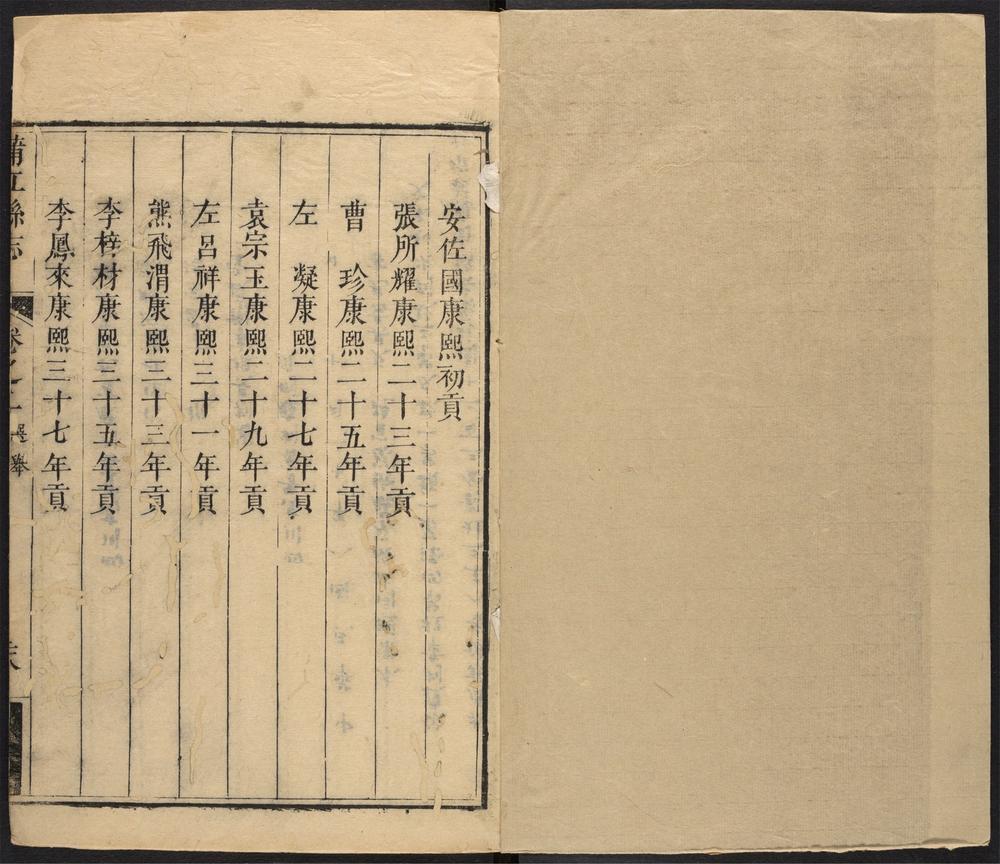 安佐國康熙初貢
張所耀康熙二十三年貢
曹　珍康熙二十五年貢
左　凝康熙二十七年貢
袁宗玉康熙二十九年貢
左呂祥康熙三十一年貢
熊飛渭康熙三十三年貢
李梓材康熙三十五年貢
李鳳來康熙三十七年貢
蒲江縣志 卷之 選舉